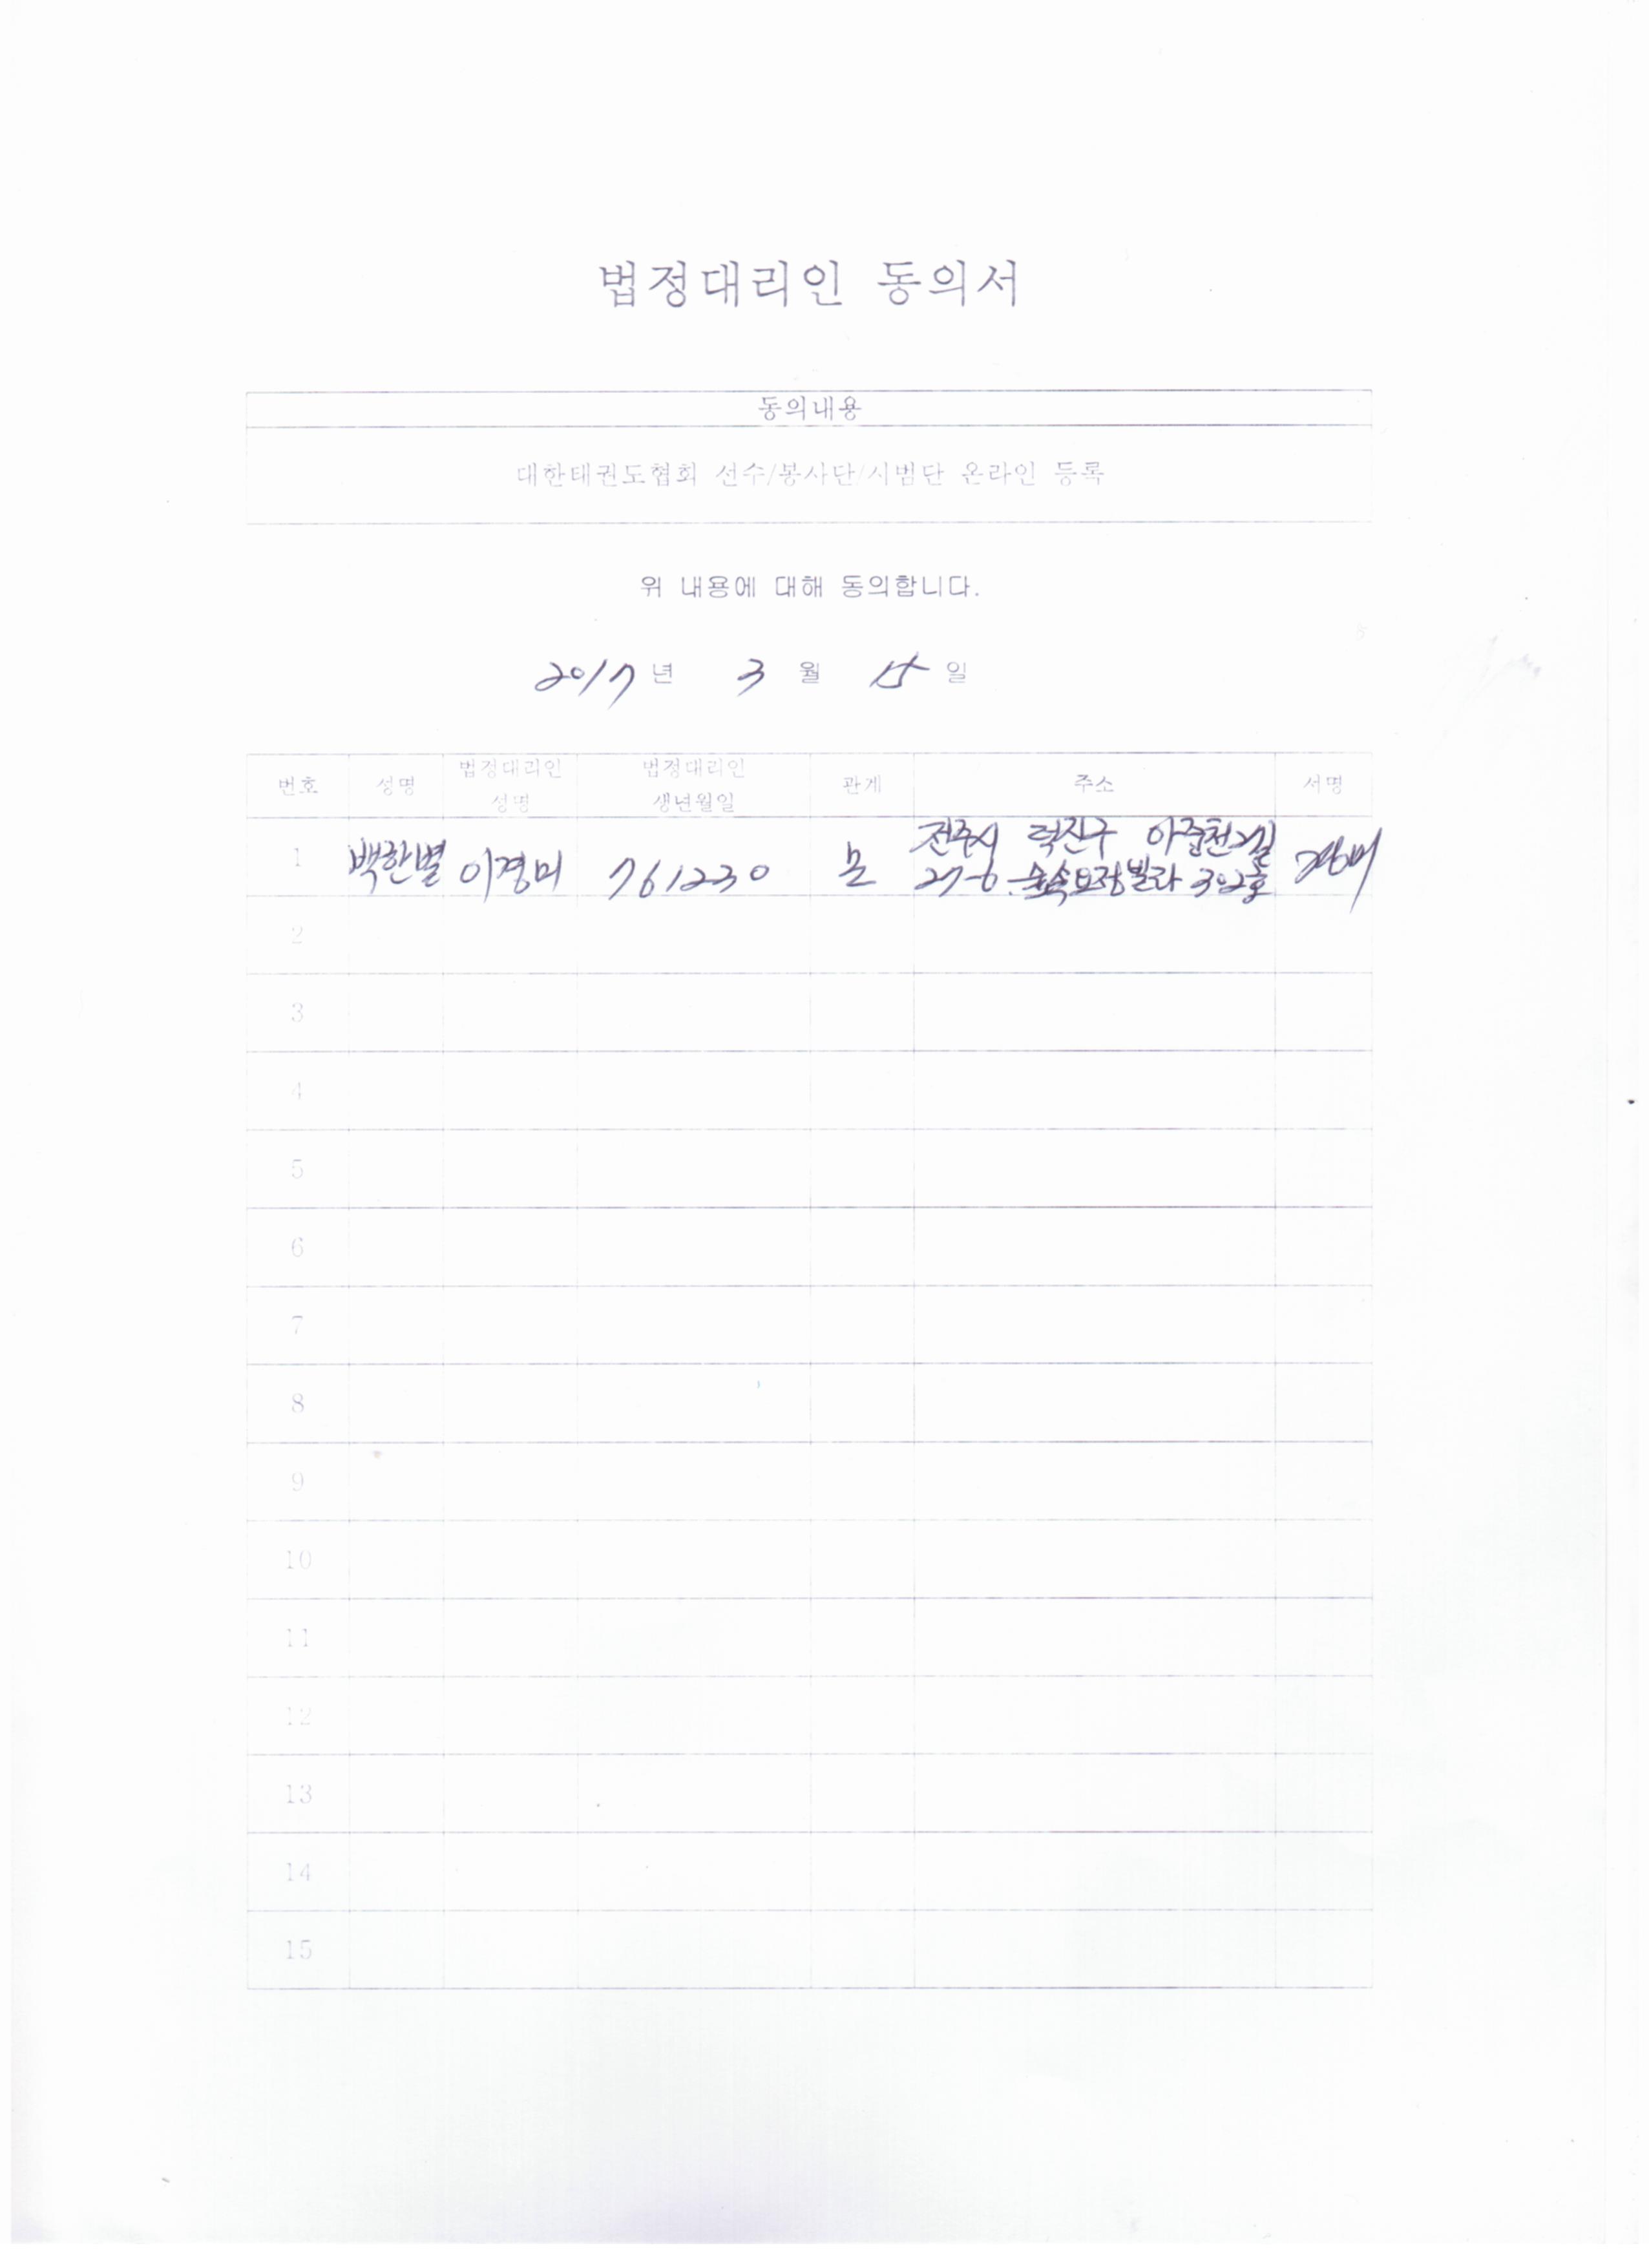 법정대리인 동의서
동의내용
대한태권도협회 선수/봉사단/시범단 온라인 등록
위 내용에 대해 동의합니다.
2017년 3월 15일
번호 성명 법정대리인 성명 법정대리인 생년월일 관계 주소 서명
1 백한별 이경미 761230 모 전주시 덕진구 아중천2길
27-6. 숲속요정빌라 302호
2
3
4
5
6
7
8
9
10
11
12
13
14
15